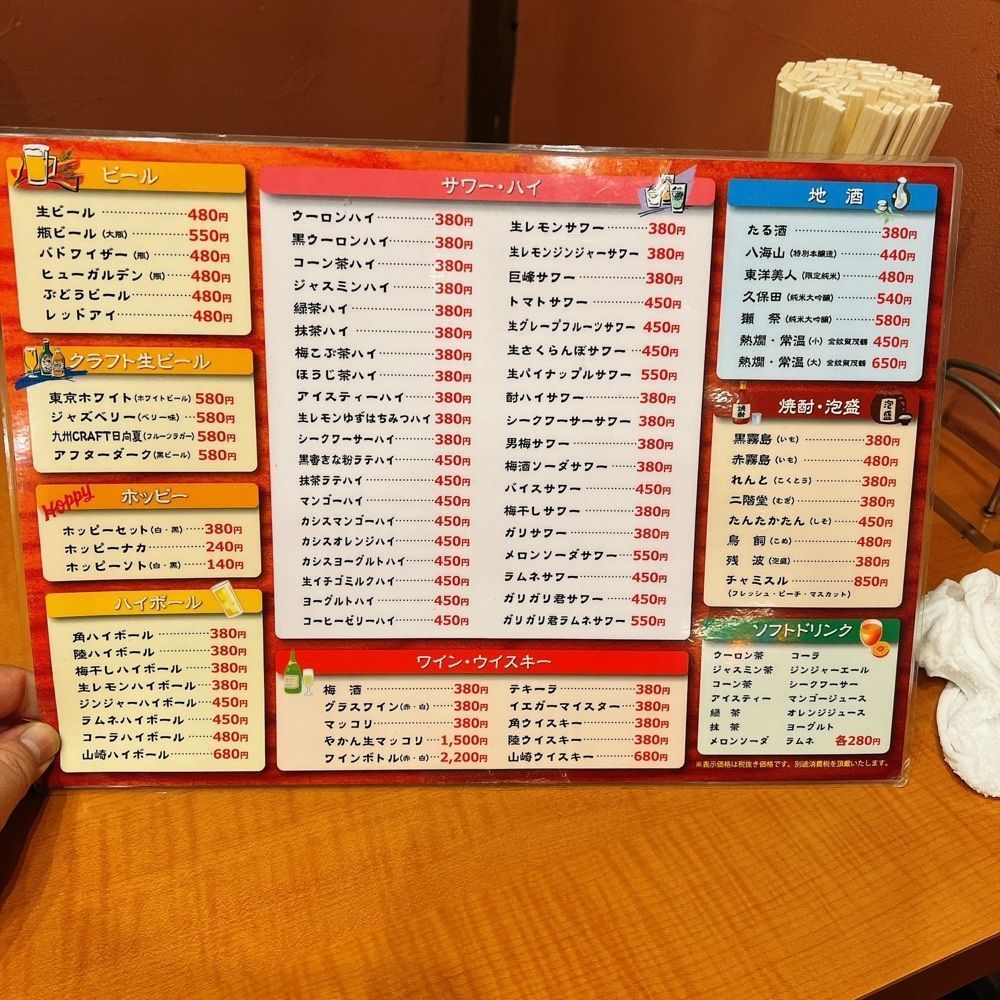 ビール
生ビール 480円
瓶ビール(大瓶) 550円
バドワイザー(瓶) 480円
ヒューガルデン(瓶) 480円
ぶどうビール 480円
レッドアイ 480円
クラフト生ビール
東京ホワイト(ホワイトビール) 580円
ジャズベリー(ベリー味) 580円
九州CRAFT日向夏(フルーツラガー) 580円
アフターダーク(黒ビール) 580円
HOPPY
ホッピー
ホッピーセット(白・黒) 380円
ホッピーナカ 240円
ホッピーソト(白・黒) 140円
ハイボール
角ハイボール 380円
陸ハイボール 380円
梅干しハイボール 380円
生レモンハイボール 380円
ジンジャーハイボール 450円
ラムネハイボール 450円
コーラハイボール 480円
山崎ハイボール 680円
サワー・ハイ
ウーロンハイ 380円
黒ウーロンハイ 380円
コーン茶ハイ 380円
ジャスミンハイ 380円
緑茶ハイ 380円
抹茶ハイ 380円
梅こぶ茶ハイ 380円
ほうじ茶ハイ 380円
アイスティーハイ 380円
生レモンゆずはちみつハイ 380円
シークワーサーハイ 380円
黒蜜きな粉ラテハイ 450円
抹茶ラテハイ 450円
マンゴーハイ 450円
カシスマンゴーハイ 450円
カシスオレンジハイ 450円
カシスヨーグルトハイ 450円
生イチゴミルクハイ 450円
ヨーグルトハイ 450円
コーヒーゼリーハイ 450円
生レモンサワー 380円
生レモンジンジャーサワー 380円
巨峰サワー 380円
トマトサワー 450円
生グレープフルーツサワー 450円
生さくらんぼサワー 450円
生パイナップルサワー 550円
酎ハイサワー 380円
シークワーサーサワー 380円
男梅サワー 380円
梅酒ソーダサワー 380円
バイスサワー 450円
梅干しサワー 380円
ガリサワー 380円
メロンソーダサワー 550円
ラムネサワー 450円
ガリガリ君サワー 450円
ガリガリ君ラムネサワー 550円
ワイン・ウイスキー
梅酒 380円
グラスワイン(赤・白) 380円
マッコリ 380円
やかん生マッコリ 1,500円
ワインボトル(赤・白) 2,200円
テキーラ 380円
イエガーマイスター 380円
角ウイスキー 380円
陸ウイスキー 380円
山崎ウイスキー 680円
地酒
たる酒 380円
八海山(特別本醸造) 440円
東洋美人(限定純米) 480円
久保田(純米大吟醸) 540円
獺祭(純米大吟醸) 580円
熱燗・常温(小)金紋賀茂鶴 450円
熱燗・常温(大)金紋賀茂鶴 650円
焼酎・泡盛
焼酎
泡盛
黒霧島(いも) 380円
赤霧島(いも) 480円
れんと(こくとう) 380円
二階堂(むぎ) 380円
たんたかたん(しそ) 450円
鳥飼(こめ) 480円
残波(泡盛) 380円
チャミスル 850円
(フレッシュ・ピーチ・マスカット)
ソフトドリンク
ウーロン茶 コーラ
ジャスミン茶 ジンジャーエール
コーン茶 シークワーサー
アイスティー マンゴージュース
緑茶 オレンジジュース
抹茶 ヨーグルト
メロンソーダ ラムネ 各280円
※表示価格は税抜き価格です。別途消費税を頂戴いたします。